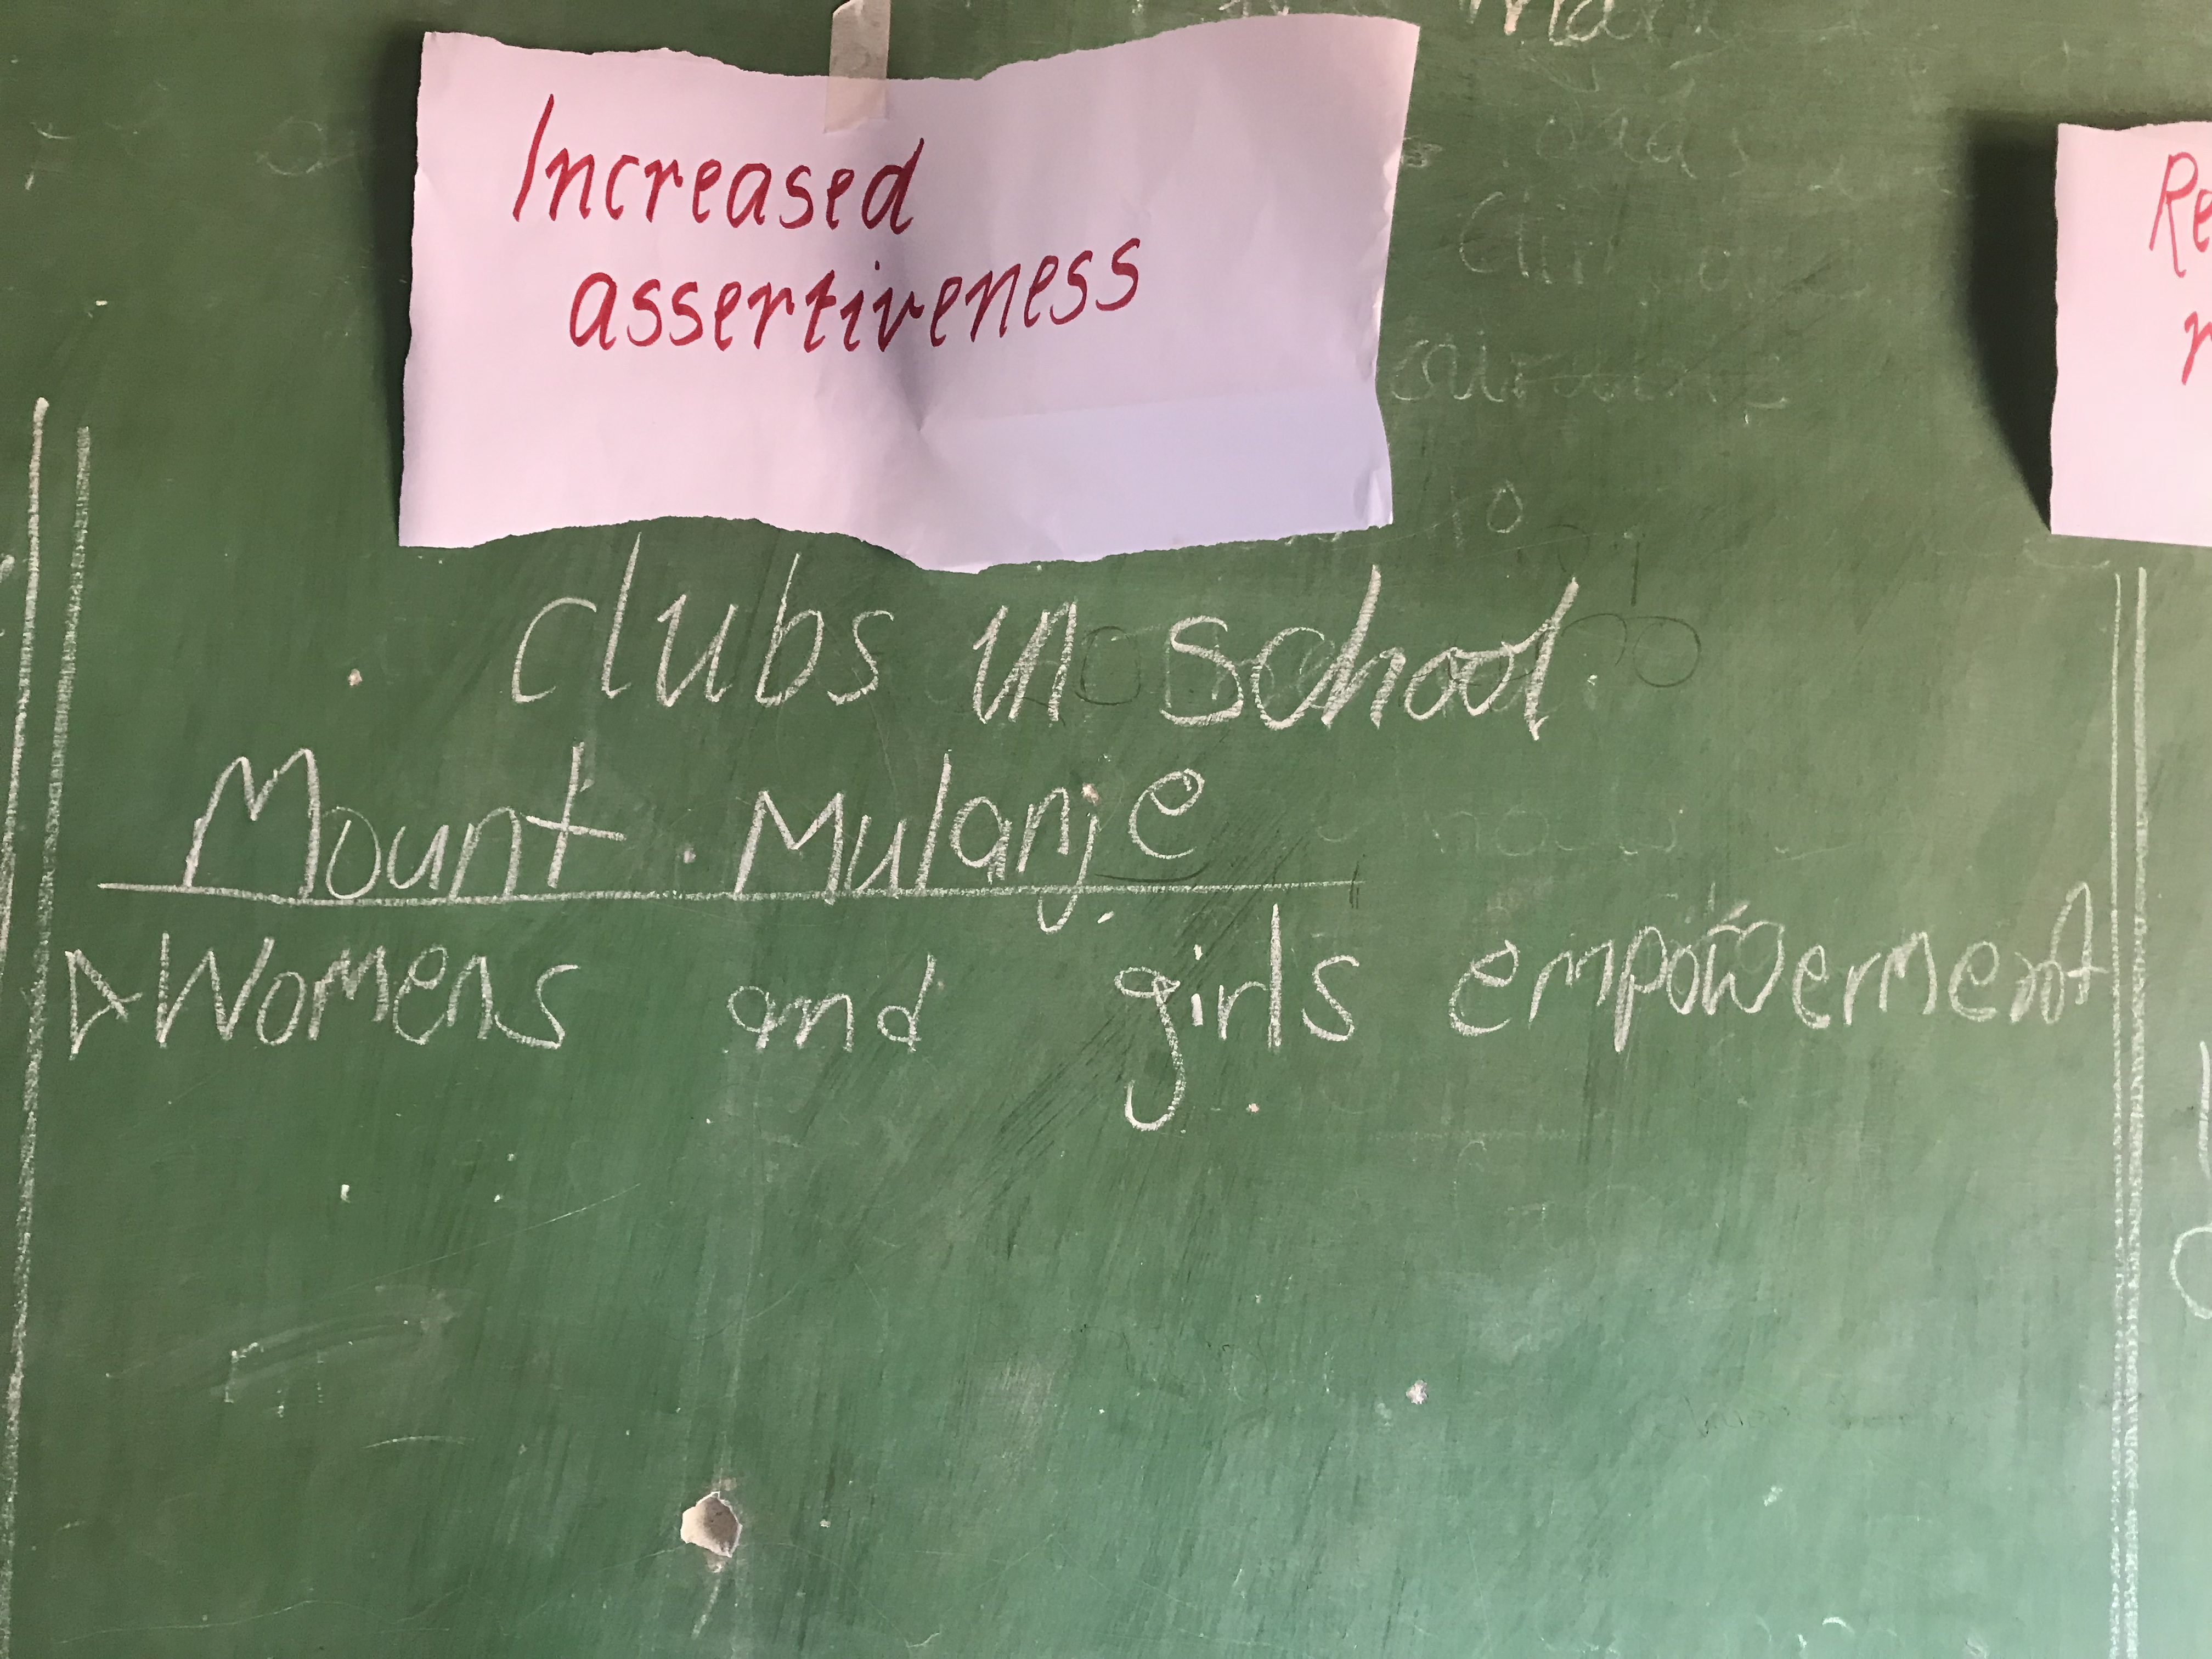 Increased
assertiveness
Re
clubs in school.
Mount Mulanje
Womens and girls empowerment